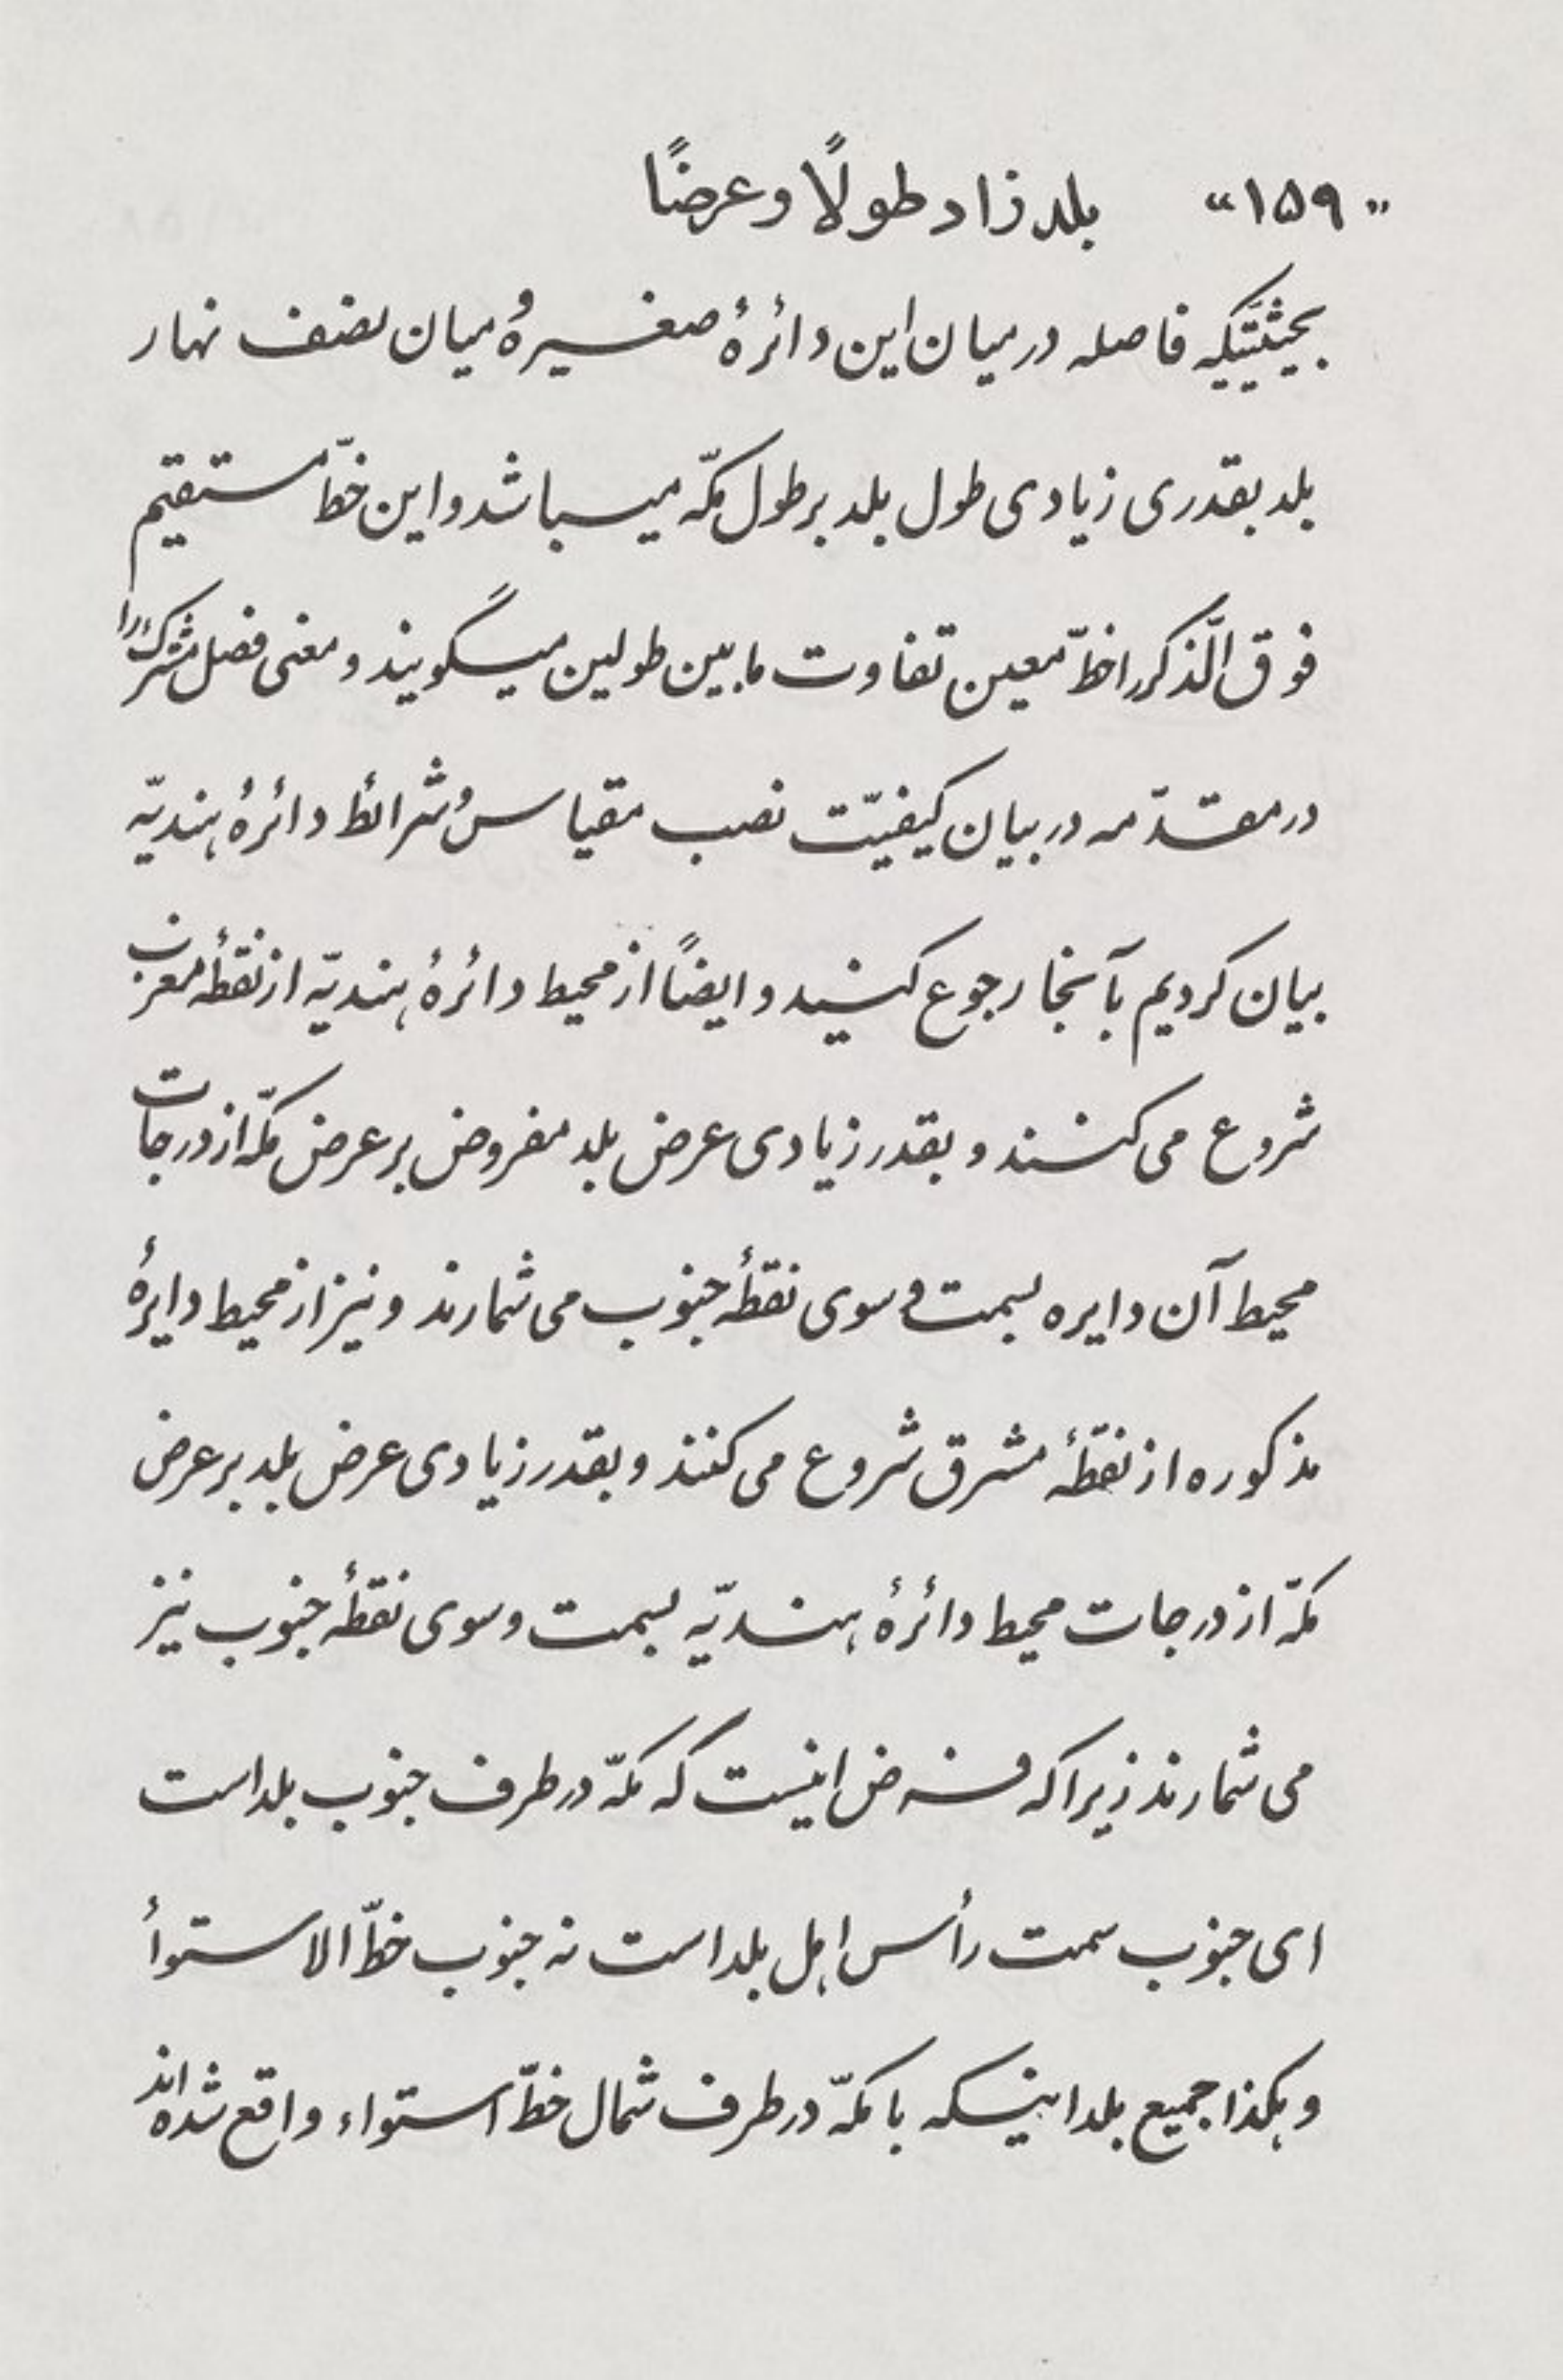 «۱۵۹» بلد زاد طولًا و عرضًا
بحیثیّتیکه فاصله در میان این دائرهٔ صغیره و میان نصف نهار
بلد بقدری زیادی طول بلد بر طول مکّه میباشد و این خطّ مستقیم
فوق الّذکر را خطّ معین تفاوت مابین طولین میگویند و معنی فصل مشترک را
در مقدّمه در بیان کیفیّت نصب مقیاس و شرائط دائرهٔ هندیّه
بیان کردیم بآنجا رجوع کنید و ایضًا از محیط دائرهٔ هندیّه از نقطهٔ مغرب
شروع می کنند و بقدر زیادی عرض بلد مفروض بر عرض مکّه از درجات
محیط آن دایره بسمت و سوی نقطهٔ جنوب می شمارند و نیز از محیط دایرهٔ
مذکوره از نقطهٔ مشرق شروع می کنند و بقدر زیادی عرض بلد بر عرض
مکّه از درجات محیط دائرهٔ هندیّه بسمت و سوی نقطهٔ جنوب نیز
می شمارند زیرا که فرض اینست که مکّه در طرف جنوب بلد است
ای جنوب سمت رأس اهل بلد است نه جنوب خطّ الاستوأ
و هکذا جمیع بلدانیکه با مکّه در طرف شمال خطّ استواء واقع شده اند